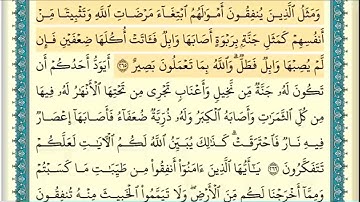 وَمَثَلُ ٱلَّذِينَ يُنفِقُونَ أَمْوَٰلَهُمُ ٱبْتِغَآءَ مَرْضَاتِ ٱللَّهِ وَتَثْبِيتًا مِّنْ
أَنفُسِهِمْ كَمَثَلِ جَنَّةٍۭ بِرَبْوَةٍ أَصَابَهَا وَابِلٌ فَـَٔاتَتْ أُكُلَهَا ضِعْفَيْنِ فَإِن
لَّمْ يُصِبْهَا وَابِلٌ فَطَلٌّ ۗ وَٱللَّهُ بِمَا تَعْمَلُونَ بَصِيرٌ ٢٦٥ أَيَوَدُّ أَحَدُكُمْ أَن
تَكُونَ لَهُۥ جَنَّةٌ مِّن نَّخِيلٍ وَأَعْنَابٍ تَجْرِى مِن تَحْتِهَا ٱلْأَنْهَٰرُ لَهُۥ فِيهَا
مِن كُلِّ ٱلثَّمَرَٰتِ وَأَصَابَهُ ٱلْكِبَرُ وَلَهُۥ ذُرِّيَّةٌ ضُعَفَآءُ فَأَصَابَهَآ إِعْصَارٌ
فِيهِ نَارٌ فَٱحْتَرَقَتْ ۗ كَذَٰلِكَ يُبَيِّنُ ٱللَّهُ لَكُمُ ٱلْـَٔايَٰتِ لَعَلَّكُمْ
تَتَفَكَّرُونَ ٢٦٦ يَٰٓأَيُّهَا ٱلَّذِينَ ءَامَنُوٓا۟ أَنفِقُوا۟ مِن طَيِّبَٰتِ مَا كَسَبْتُمْ
وَمِمَّآ أَخْرَجْنَا لَكُم مِّنَ ٱلْأَرْضِ ۖ وَلَا تَيَمَّمُوا۟ ٱلْخَبِيثَ مِنْهُ تُنفِقُونَ